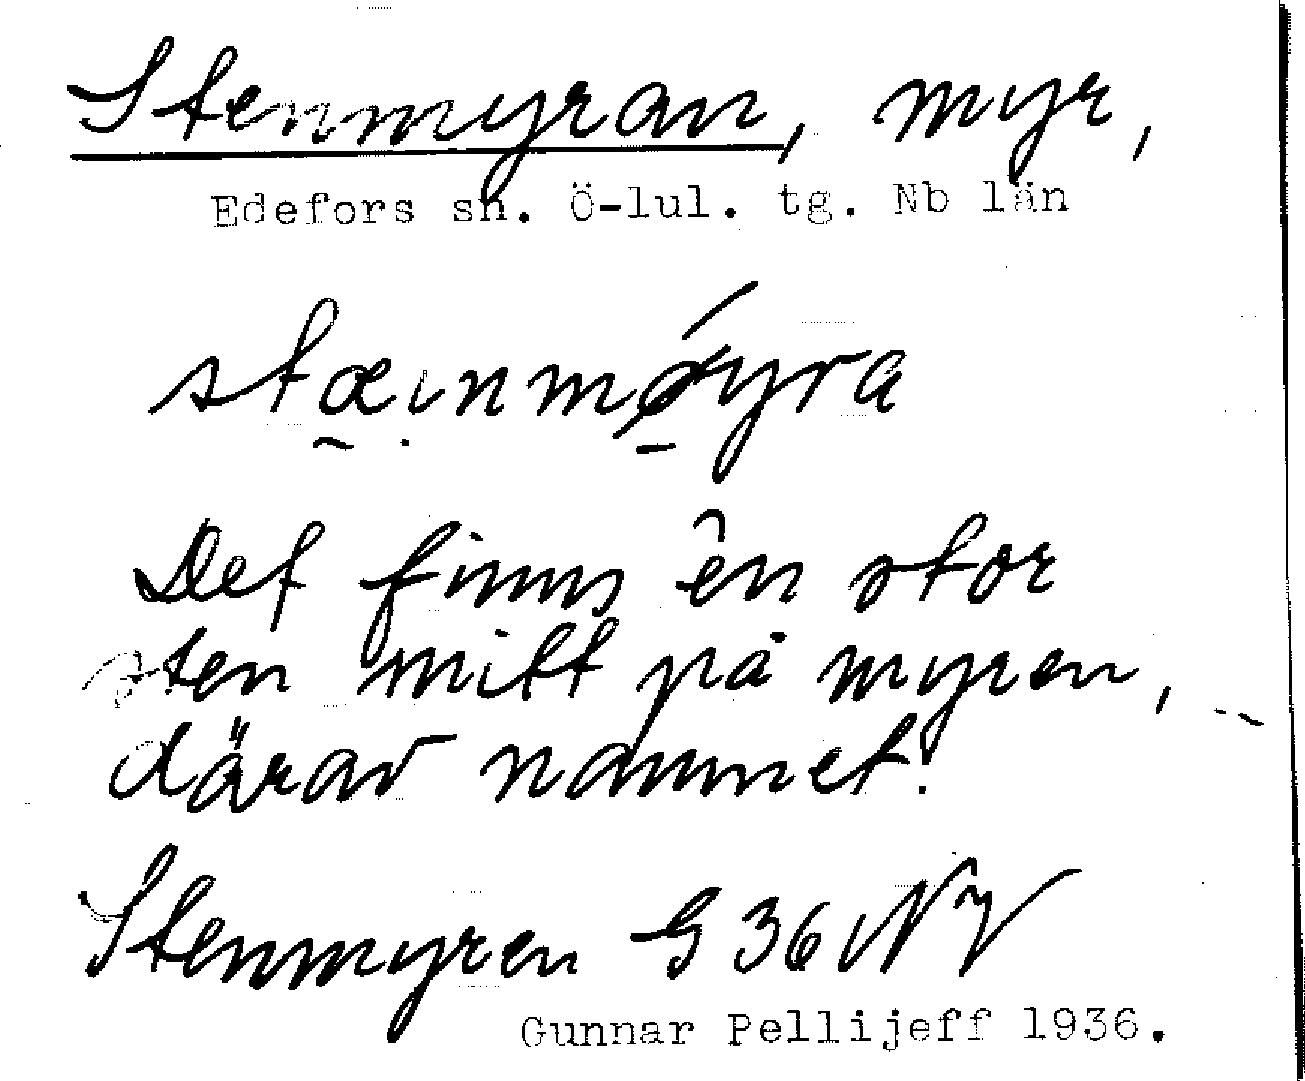 Stenmyran, myr,
Edefors sn. Ö-lul. tg. Nb län
stæinmøyra
Det finns ên stor
sten mitt på myren,
därav namnet.
Stenmyren G 36 NV
Gunnar Pellijeff 1936.